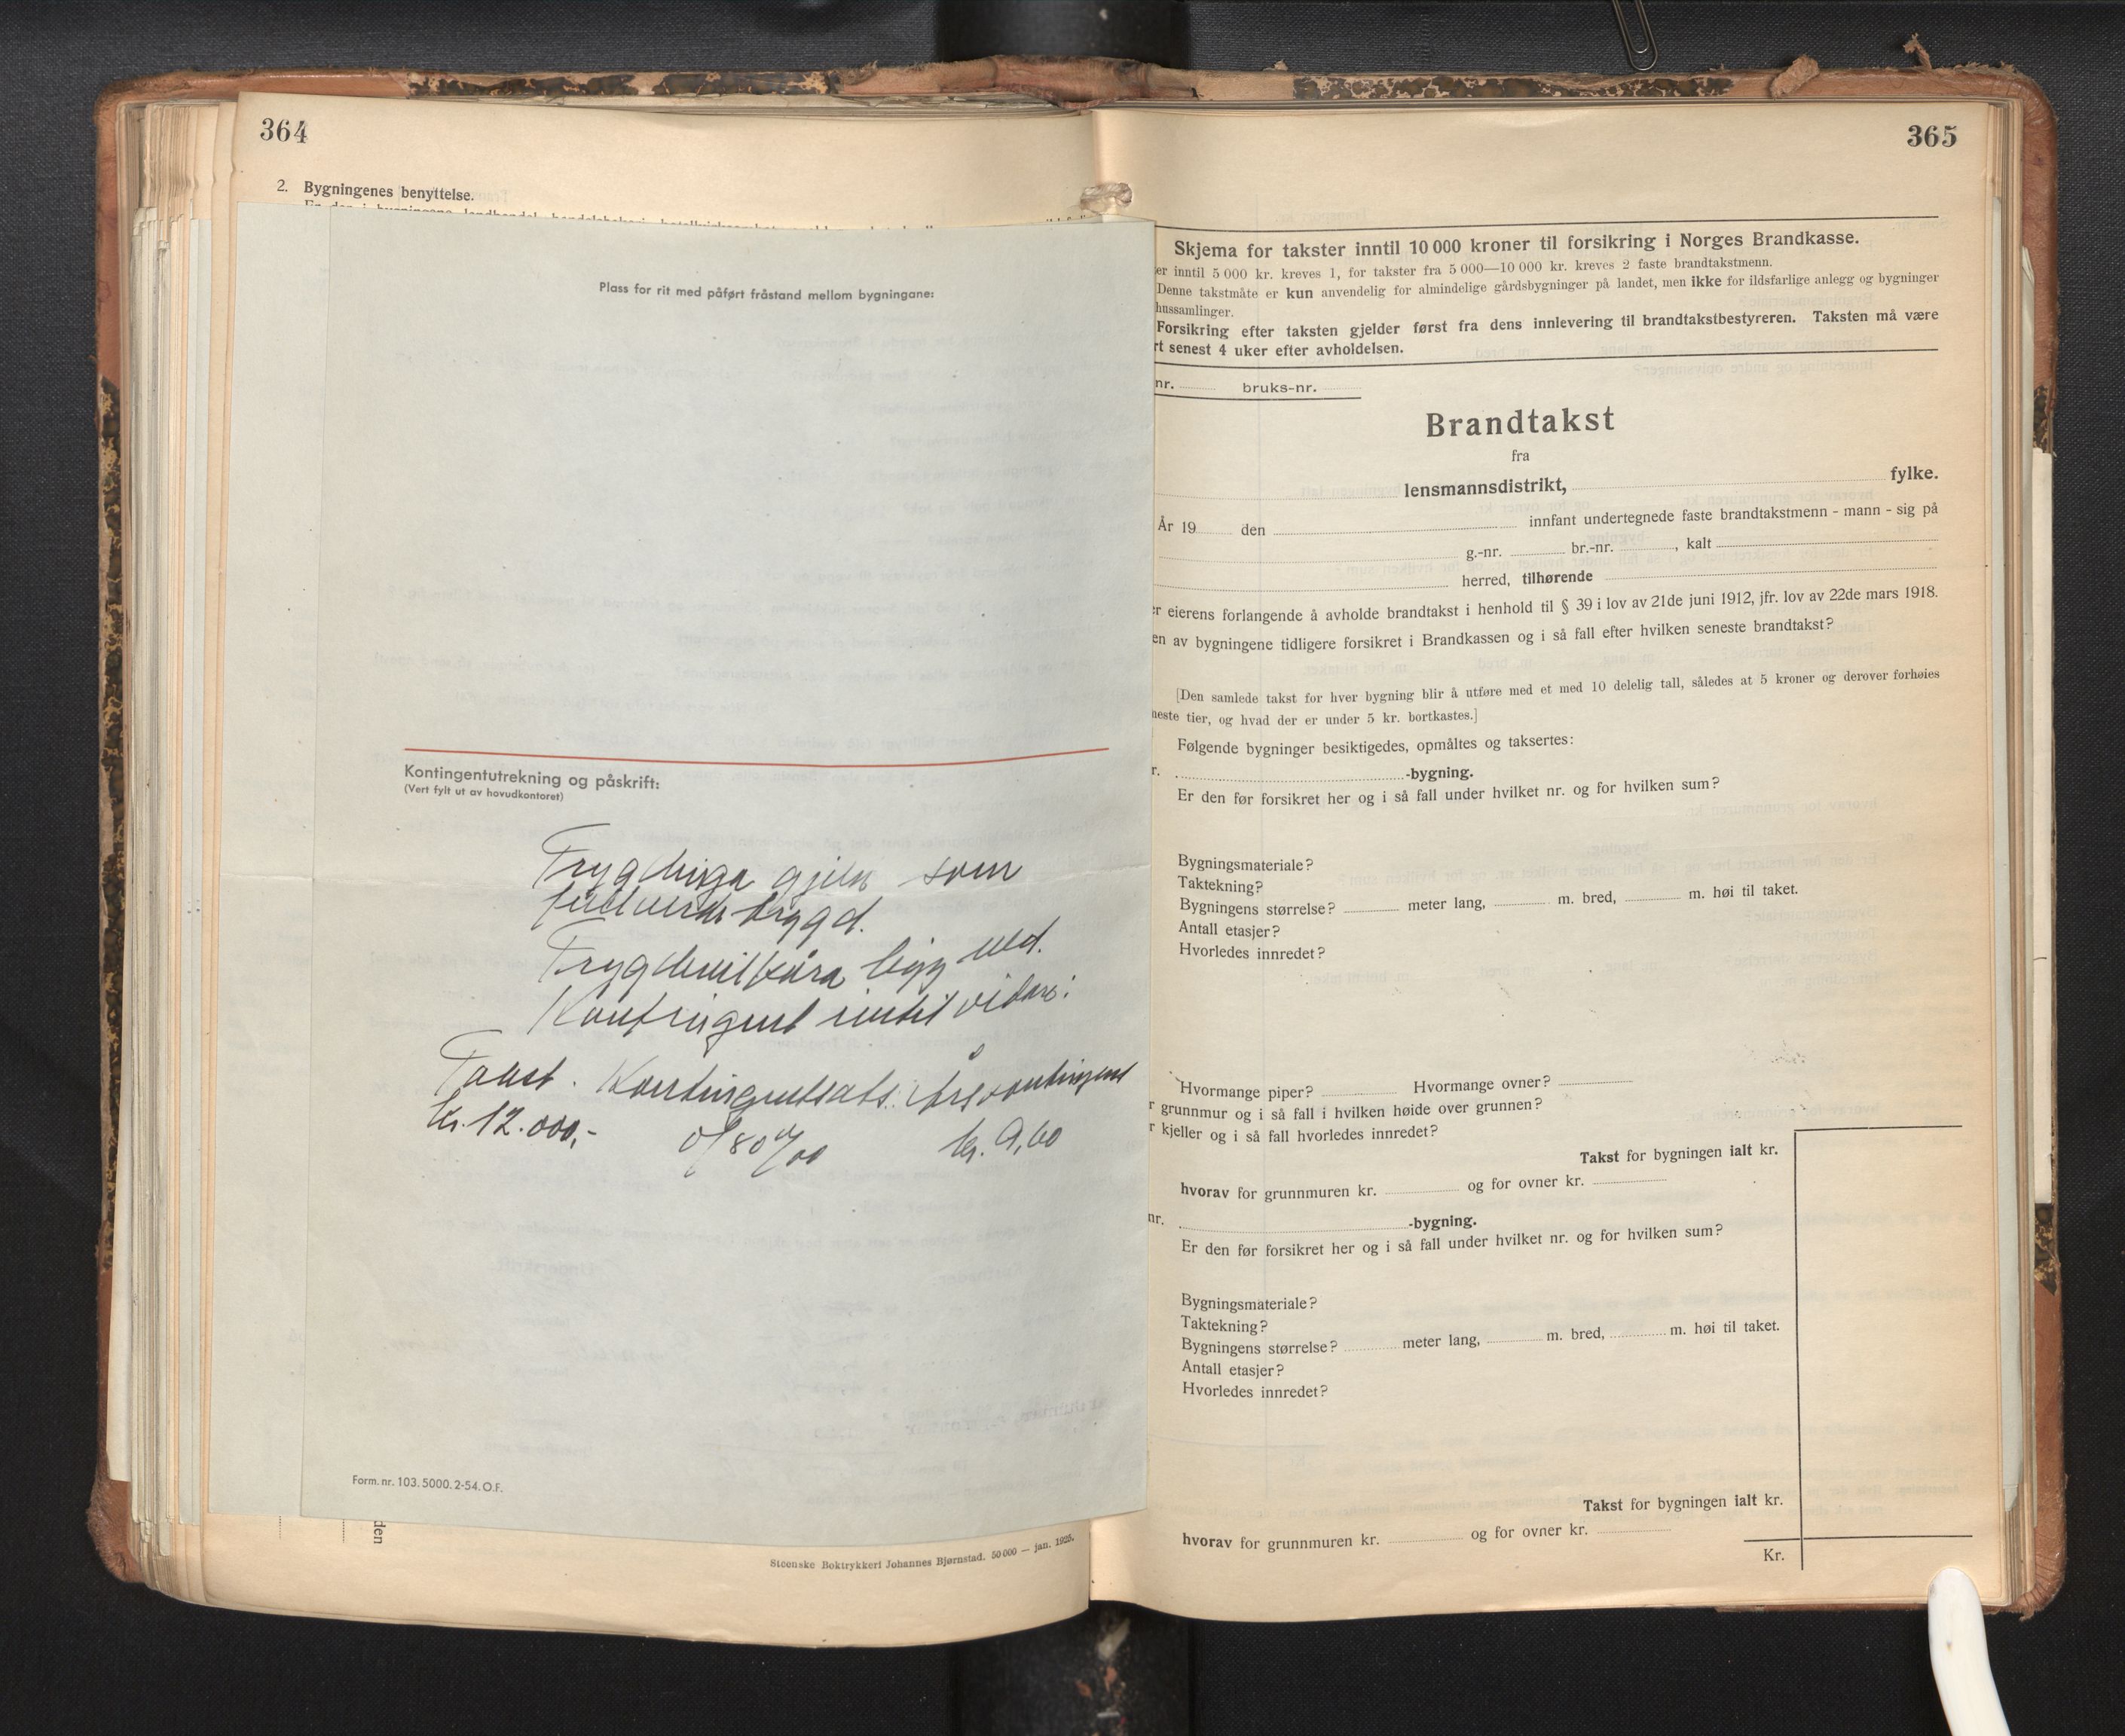 364
2. Bygningenes benyttelse.
Plass for rit med påført fråstand mellom bygningane:
Kontingentutrekning og påskrift:
(Vert fylt ut av hovudkontoret)
Trygdinga gjeld som
fullverditrygd.
Trygdevilkåra ligg ved.
Kontingent inntil vidare:
Takst. Kontingentsats. Årskontingent
kr. 12.000,- 0/80 o/oo kr. 9,60
Form. nr. 103. 5000. 2-54. O.F.
den
Steenske Boktrykkeri Johannes Bjørnstad. 50 000 — jan. 1925.
365
Skjema for takster inntil 10 000 kroner til forsikring i Norges Brandkasse.
er inntil 5 000 kr. kreves 1, for takster fra 5 000—10 000 kr. kreves 2 faste brandtakstmenn.
Denne takstmåte er kun anvendelig for almindelige gårdsbygninger på landet, men ikke for ildsfarlige anlegg og bygninger
hussamlinger.
Forsikring efter taksten gjelder først fra dens innlevering til brandtakstbestyreren. Taksten må være
rt senest 4 uker efter avholdelsen.
nr. bruks-nr.
Brandtakst
fra
lensmannsdistrikt, fylke.
År 19 den innfant undertegnede faste brandtakstmenn - mann - sig på
g.-nr. br.-nr. , kalt
herred, tilhørende
r eierens forlangende å avholde brandtakst i henhold til § 39 i lov av 21de juni 1912, jfr. lov av 22de mars 1918.
en av bygningene tidligere forsikret i Brandkassen og i så fall efter hvilken seneste brandtakst?
[Den samlede takst for hver bygning blir å utføre med et med 10 delelig tall, således at 5 kroner og derover forhøies
neste tier, og hvad der er under 5 kr. bortkastes.]
Følgende bygninger besiktigedes, opmåltes og taksertes:
r. -bygning.
Er den før forsikret her og i så fall under hvilket nr. og for hvilken sum?
Bygningsmateriale?
Taktekning?
Bygningens størrelse? meter lang, m. bred, m. høi til taket.
Antall etasjer?
Hvorledes innredet?
Hvormange piper? Hvormange ovner?
r grunnmur og i så fall i hvilken høide over grunnen?
r kjeller og i så fall hvorledes innredet?
Takst for bygningen ialt kr.
hvorav for grunnmuren kr. og for ovner kr.
nr. -bygning.
Er den før forsikret her og i så fall under hvilket nr. og for hvilken sum?
Bygningsmateriale?
Taktekning?
Bygningens størrelse? meter lang, m. bred, m. høi til taket.
Antall etasjer?
Hvorledes innredet?
Takst for bygningen ialt kr.
hvorav for grunnmuren kr. og for ovner kr.
Kr.